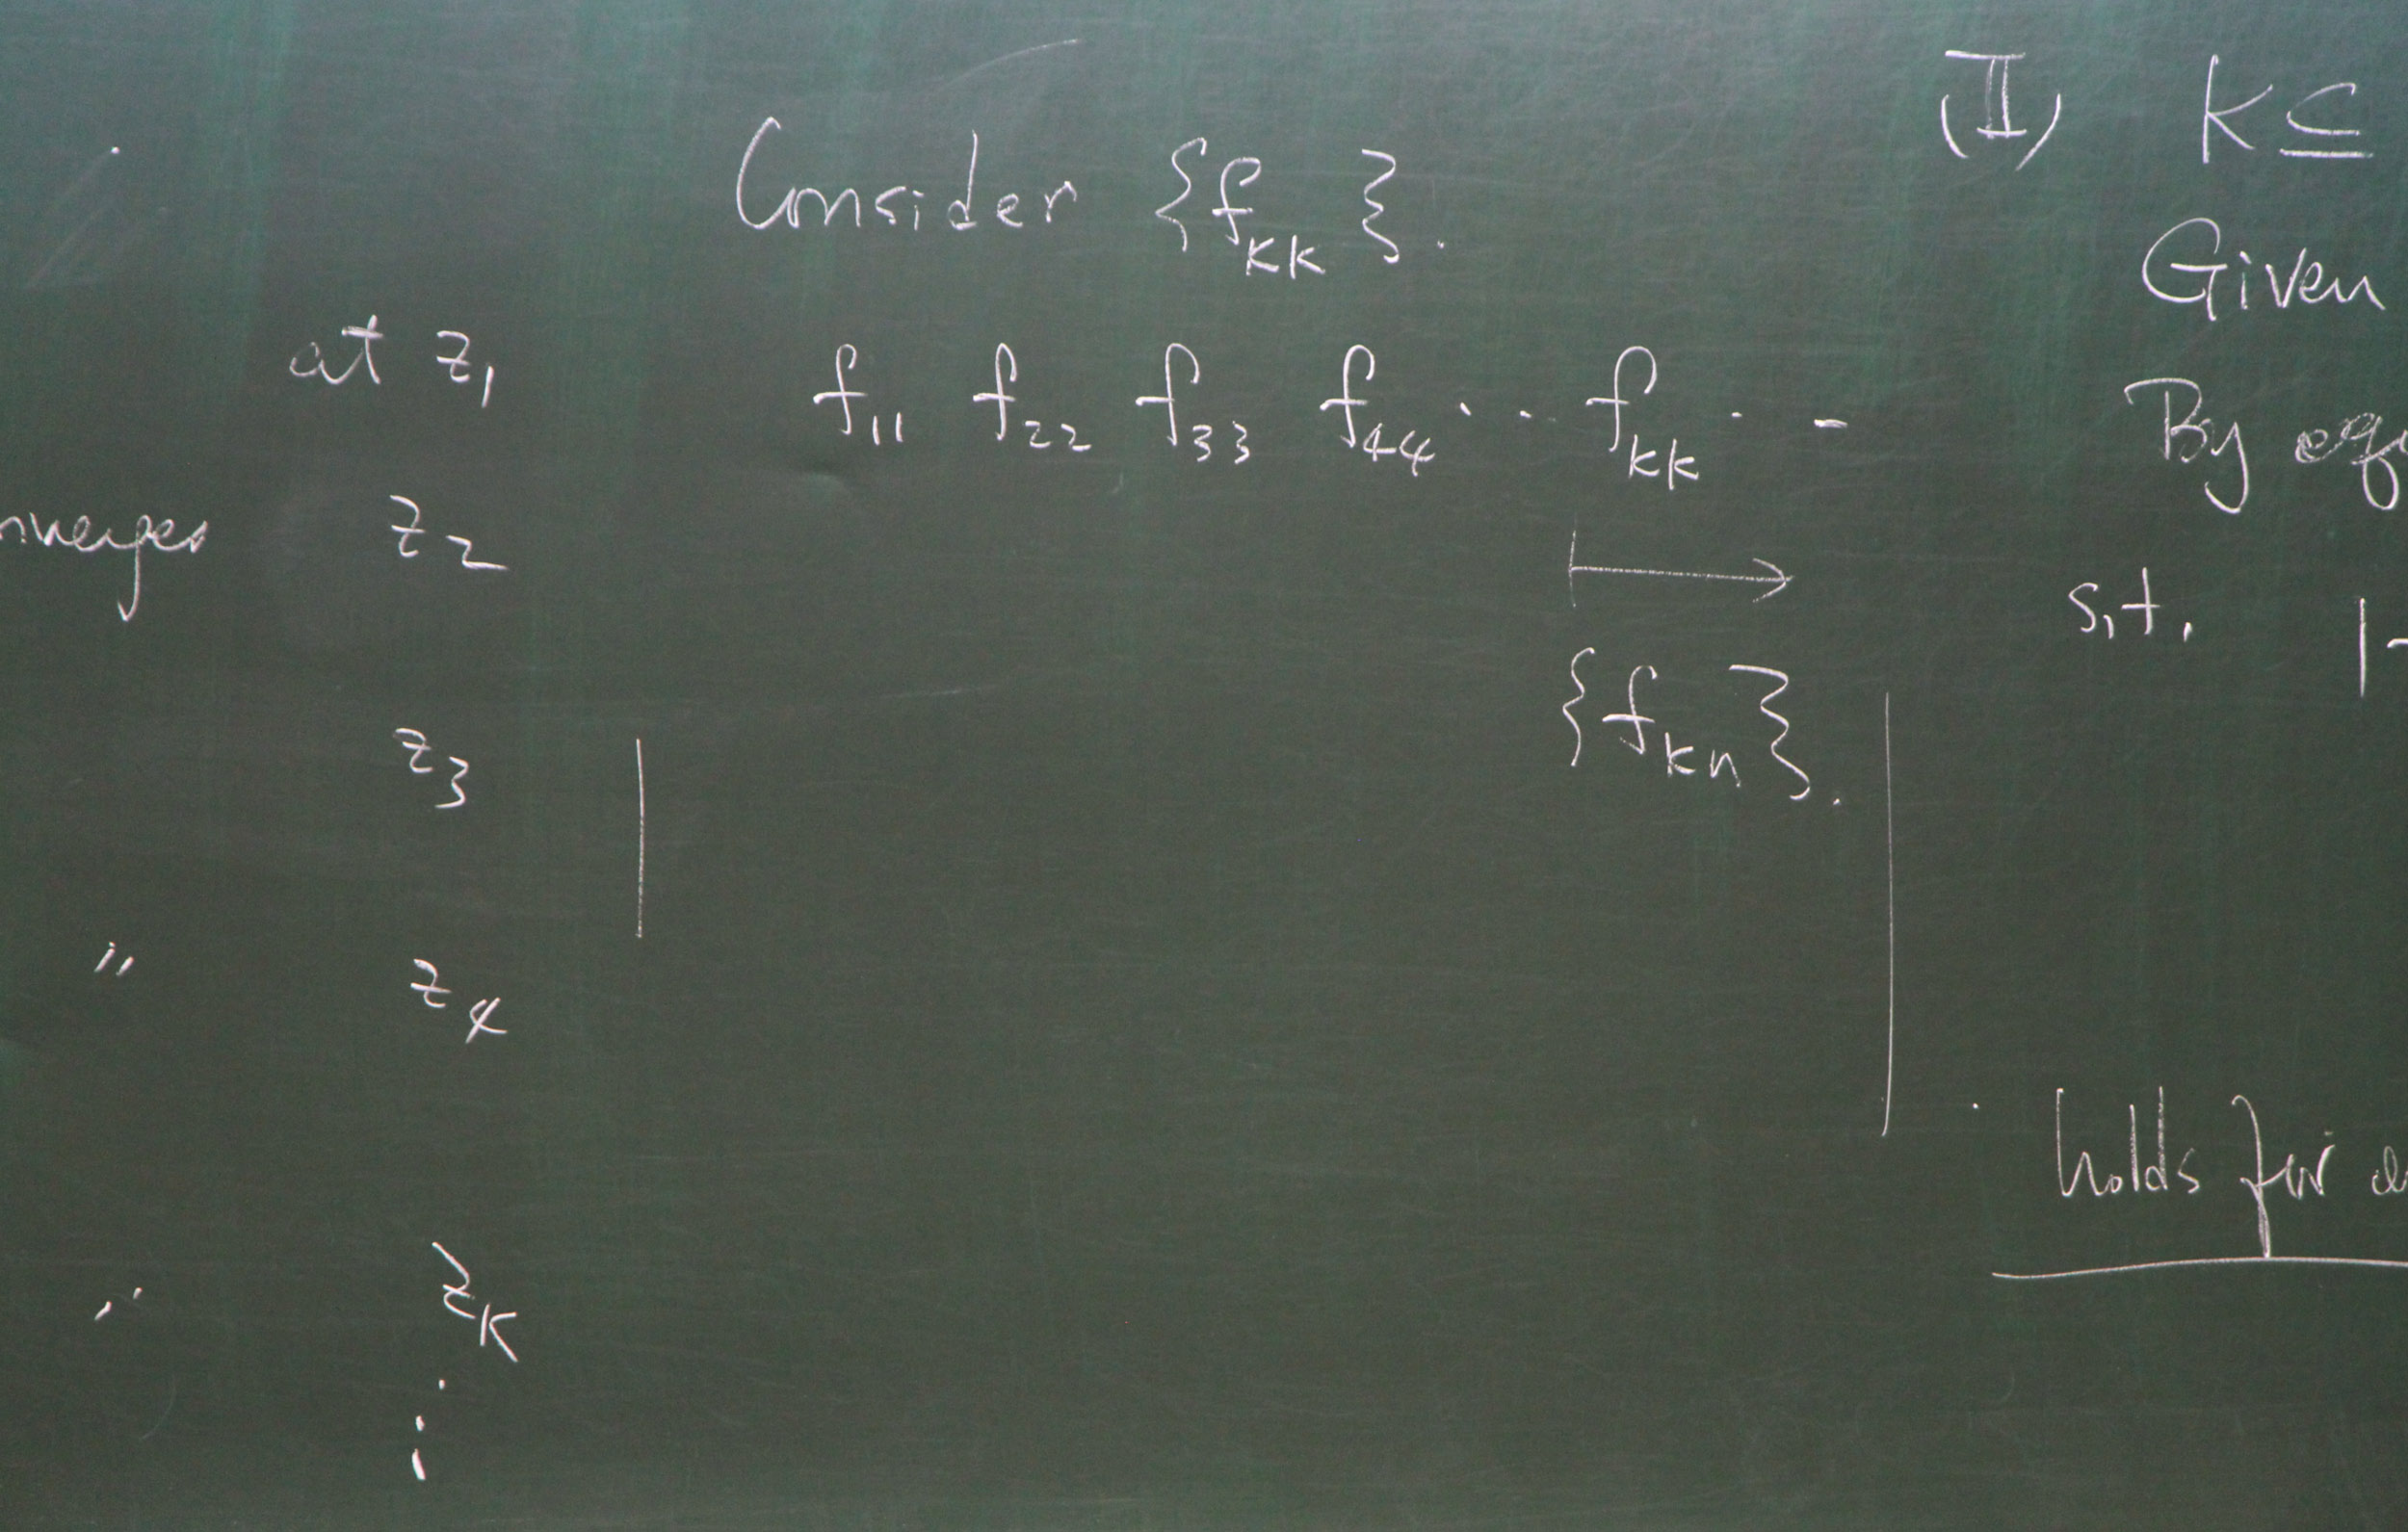 at z₁
nverges z₂
z₃
〃 z₄
〃 z_k
⋮
Consider {f_kk}.
f₁₁ f₂₂ f₃₃ f₄₄ ... f_kk ...
{f_kn}.
(II) K ⊆
Given
By equ
s.t. |
holds for